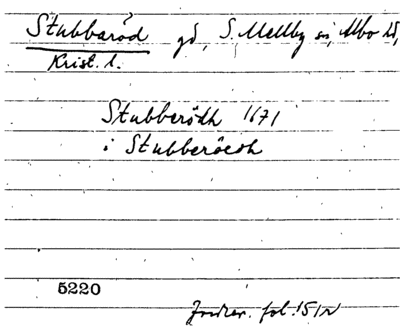 Stubbaröd gd, S. Mellby sn, Albo hd,
Krist. l.
Stubberödh 1671
i Stubberöedh
5220
Jordrev. fol. 151v